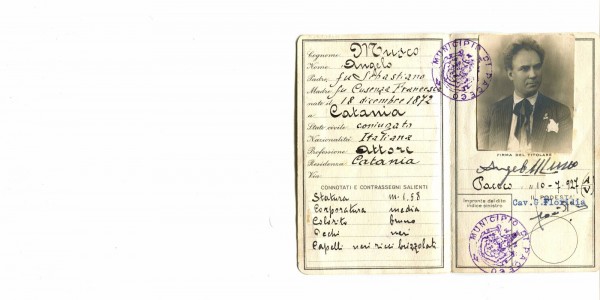 Cognome Musco
Nome Angelo
Padre fu Sebastiano
Madre fu Cosenza Francesca
nato il 18 dicembre 1872
a Catania
Stato civile coniugato
Nazionalità Italiana
Professione attore
Residenza Catania
Via
CONNOTATI E CONTRASSEGNI SALIENTI
Statura m. 1.58
Corporatura media
Colorito bruno
Occhi neri
Capelli neri ricci brizzolati
MUNICIPIO DI PACECO
FIRMA DEL TITOLARE
Angelo Musco
Paceco 10-7-927 (A V)
Impronta del dito
indice sinistro
IL PODESTÀ
Cav. G. Floridia
MUNICIPIO DI PACECO